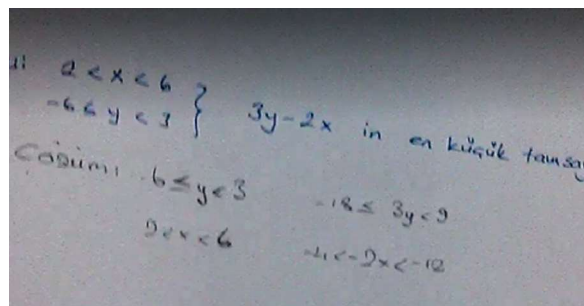 2 < x < 6
-6 ≤ y < 3 } 3y - 2x in en küçük tamsay
Çözüm: -6 ≤ y < 3 -18 ≤ 3y < 9
2 < x < 6 -4 < -2x < -12